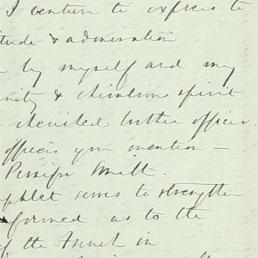 I venture to express to
& admiration
by myself and my
& chivalrous spirit
cherished brother officer
officers you mention —
Persifor Smith.
seems to strengthen
formed as to the
of the
in